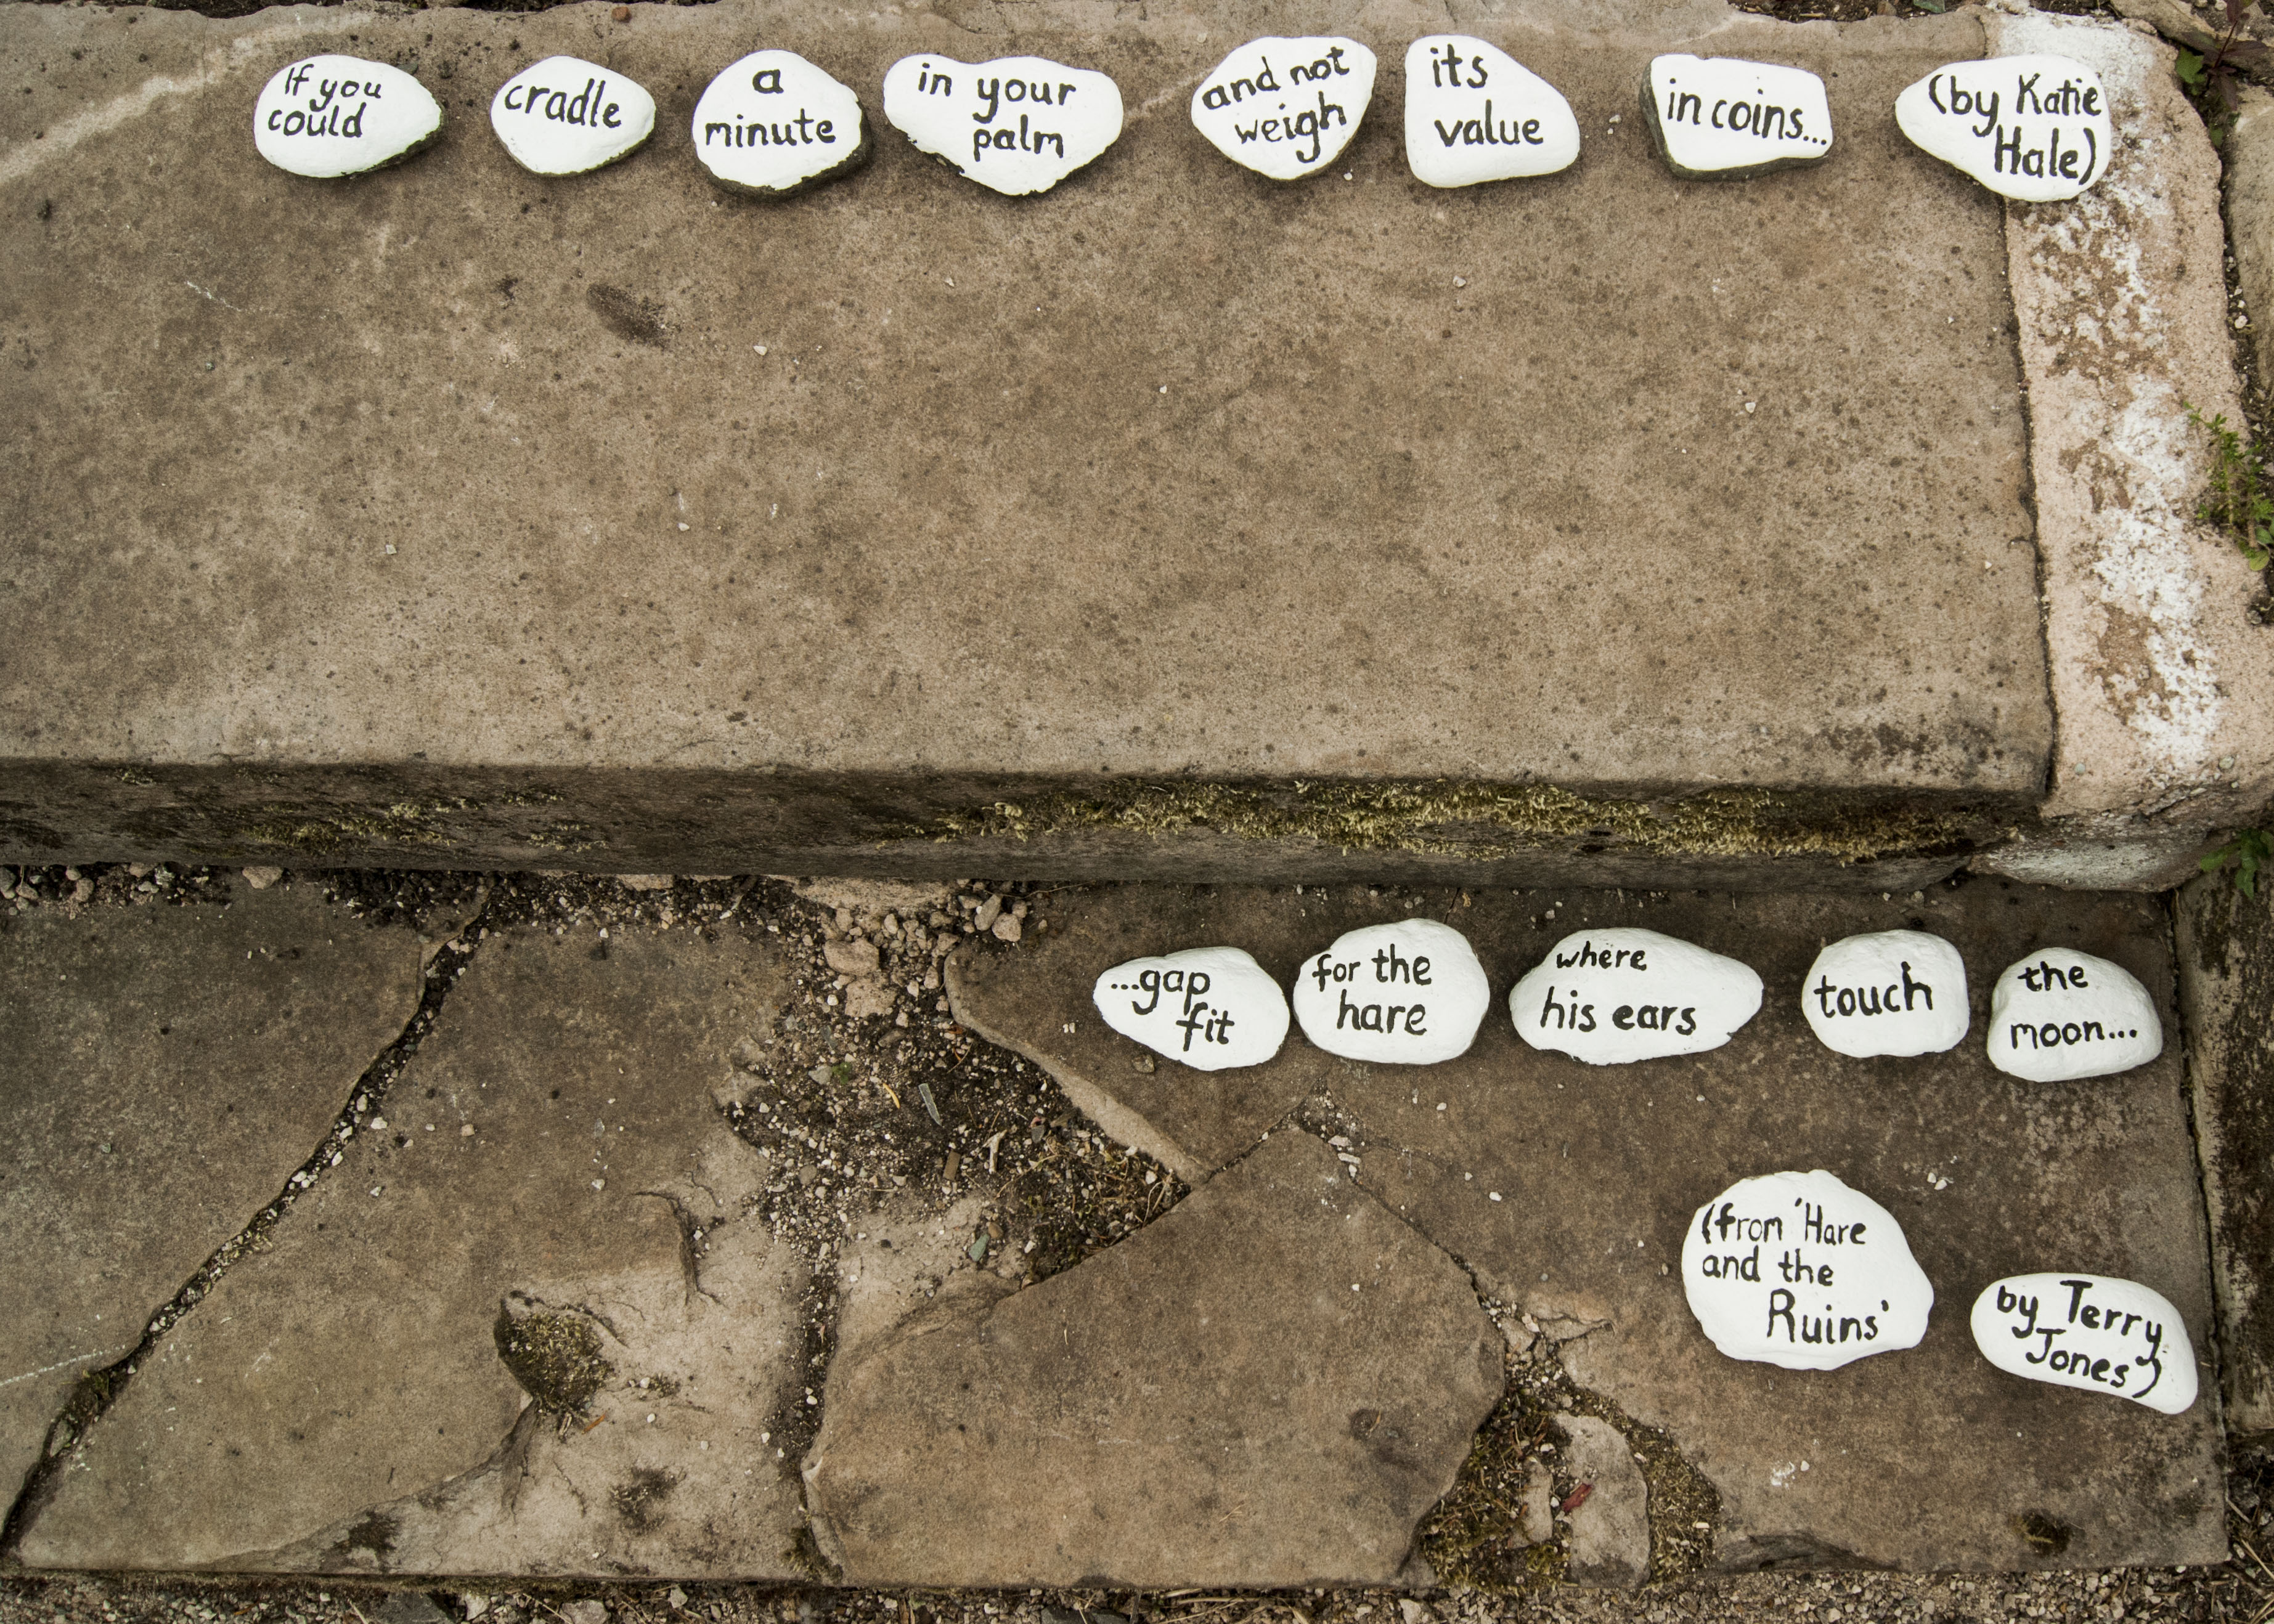 If you
could
cradle
a
minute
in your
palm
and not
weigh
its
value
in coins...
(by Katie
Hale)
...gap
fit
for the
hare
where
his ears
touch
the
moon...
(from 'Hare
and the
Ruins'
by Terry
Jones)